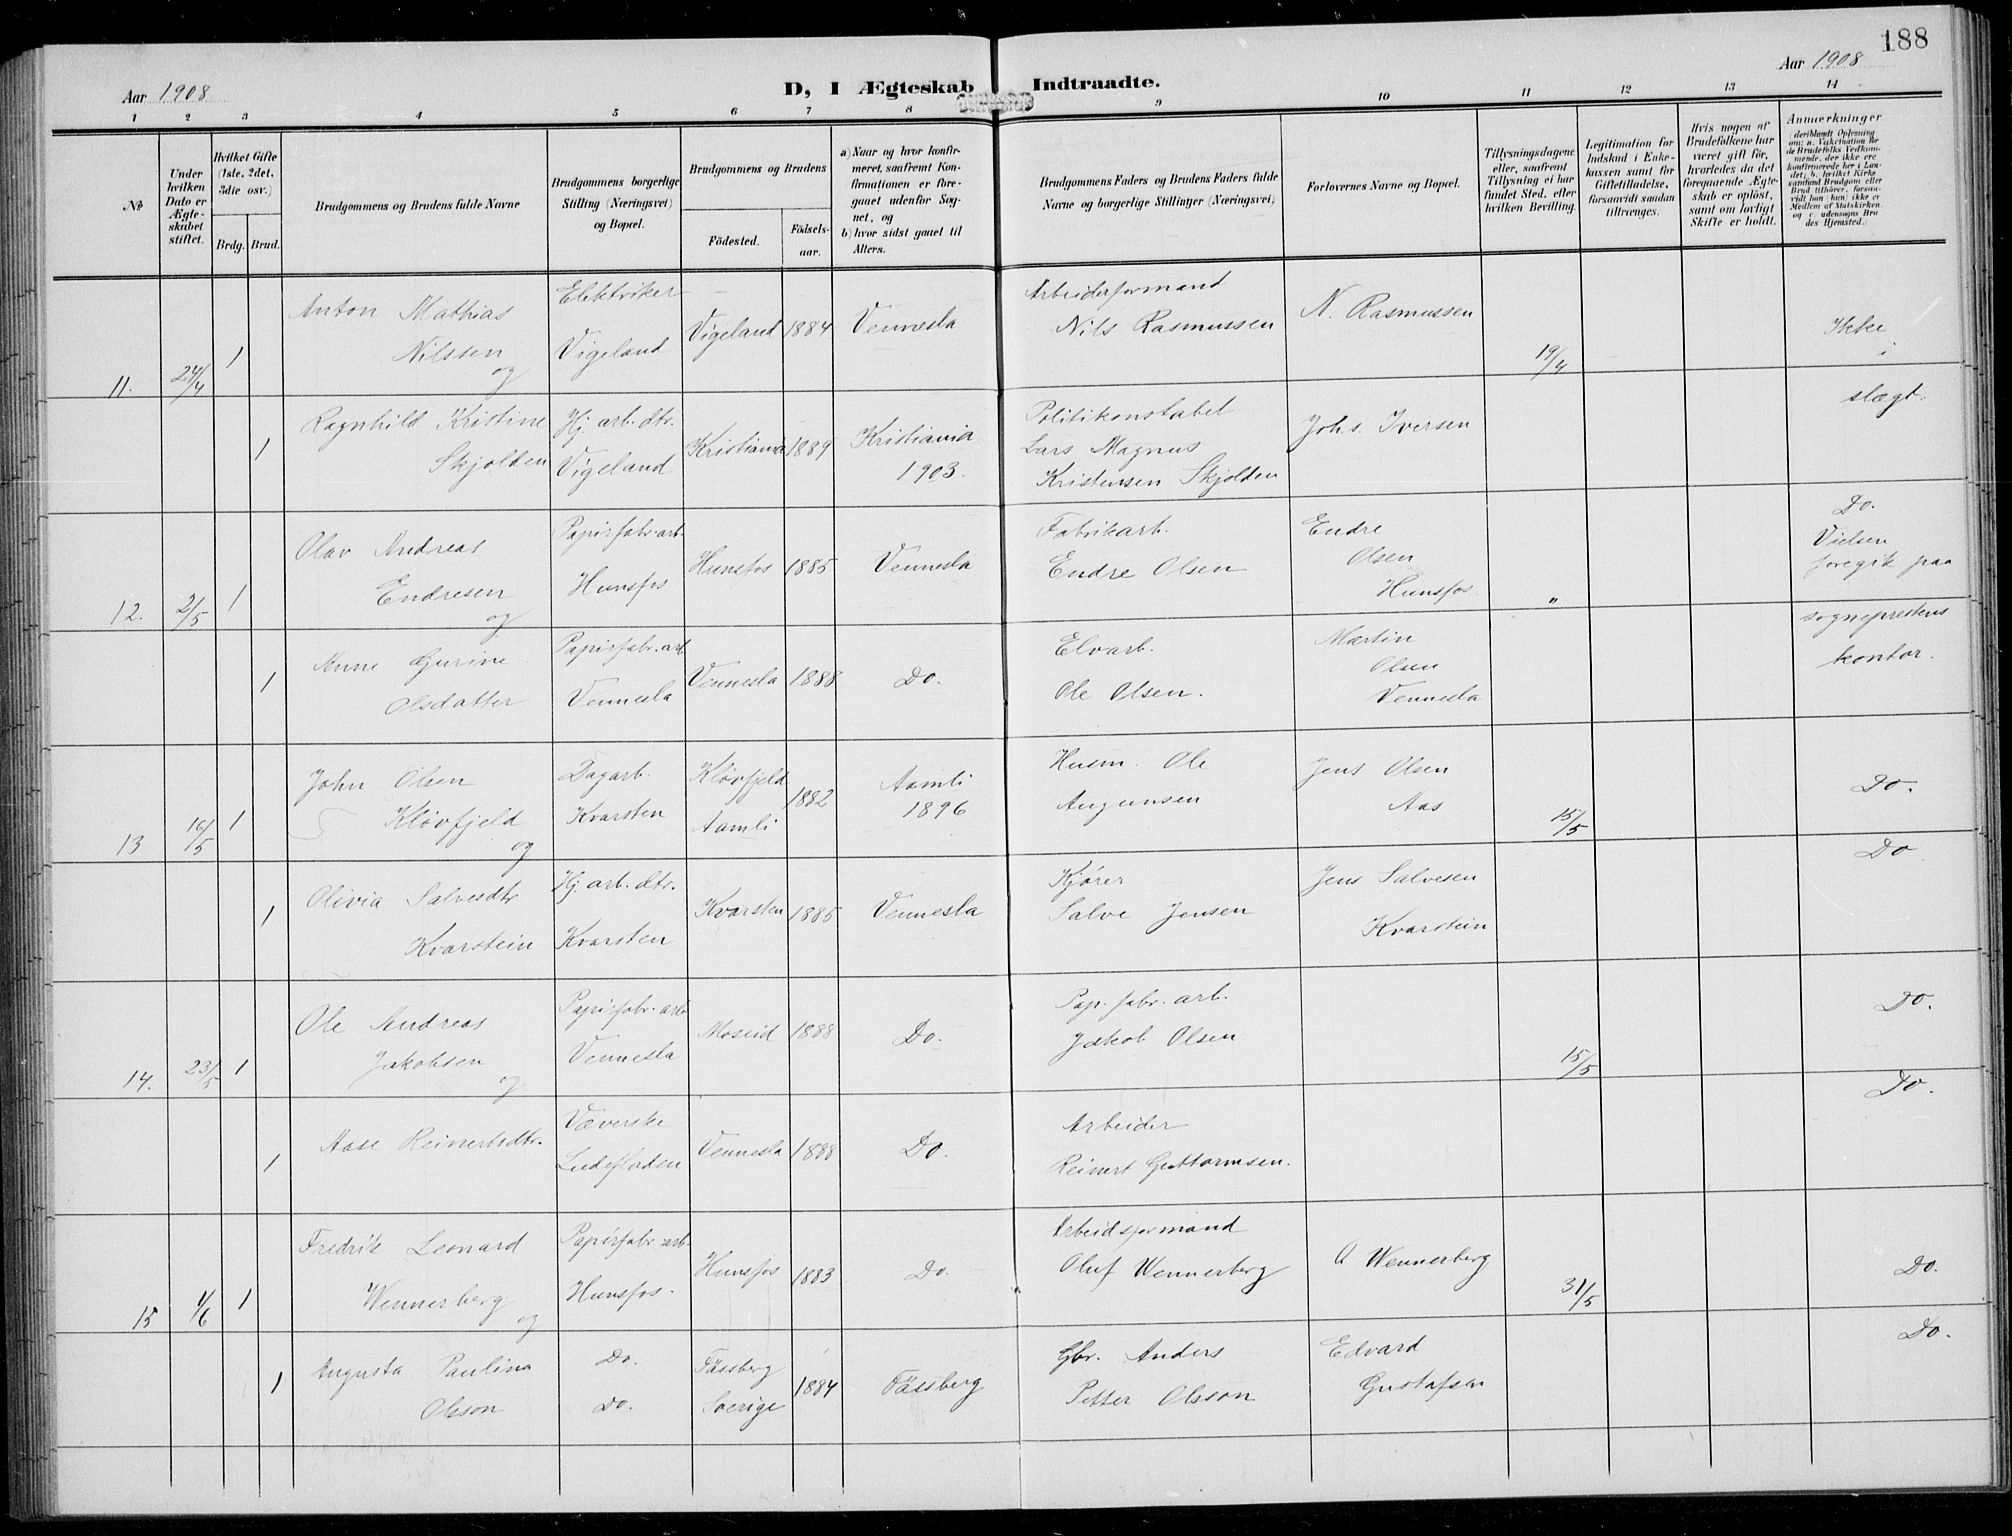 188
Aar 1908
D, I Ægteskab Indtraadte.
Aar 1908
1 2 3 4 5 6 7 8 9 10 11 12 13 14
№
Under hvilken Dato er Ægteskabet stiftet.
Hvilket Gifte (1ste, 2det, 3die osv.)
Brdg. Brud.
Brudgommens og Brudens fulde Navne
Brudgommens borgerlige Stilling (Næringsvei) og Bopæl.
Brudgommens og Brudens
Födested.
Födselsaar.
a) Naar og hvor konfirmeret, saafremt Konfirmationen er foregaaet udenfor Sognet, og
b) hvor sidst gaaet til Alters.
Brudgommens Faders og Brudens Faders fulde Navne og borgerlige Stillinger (Næringsvei)
Forlovernes Navne og Bopæl.
Tillysningsdagene eller, saafremt Tillysning ei har fundet Sted, efter hvilken Bevilling.
Legitimation for Indskud i Enkekassen samt for Giftetilladelse, forsaavidt saadan tiltrænges.
Hvis nogen af Brudefolkene har været gift för, hvorledes da det foregaaende Ægteskab er oplöst, samt om lovligt Skifte er holdt.
Anmærkninger
deriblandt Oplysning om: a. Vakcination for de Brudefolks Vedkommende, der ikke ere konfirmerede her i Landet; b. hvilket Kirkesamfund Brudgom eller Brud tilhörer, forsaavidt han (hun) ikke er Medlem af Statskirken, og c. udensogns Brudes Hjemsted.)
11. 24/4 1 Anton Mathias Nilssen og
Elektriker Vigeland
Vigeland 1884 Vennesla
Arbeiderformand Nils Rasmussen
N. Rasmussen
19/4
Ikke i slægt.
1 Ragnhild Kristine Skjolden
Hj. arb. dtr. Vigeland
Kristiania 1889 Kristiania 1903.
Politikonstabel Lars Magnus Kristensen Skjolden
Johs. Iversen
12. 2/5 1 Olav Andreas Endresen og
Papirfabr.arb. Hunsfos
Hunsfos 1885 Vennesla
Fabrikarb. Endre Olsen
Endre Olsen Hunsfos.
"
Do. Vielsen foregik paa sogneprestens kontor.
1 Anne Gurine Olsdatter
Papirfabr.arb Vennesla
Vennesla 1888 Do.
Elvarb. Ole Olsen.
Martin Olsen Vennesla
13 16/5 1 John Olsen Kløvfjeld og
Dagarb. Kvarsten
Kløvfjeld Aamli 1882 Aamli 1896
Husm. Ole Augunsen
Jens Olsen Aas
15/5
Do.
1 Olivia Salvesdtr Kvarstein
Hj. arb. dtr. Kvarsten
Kvarsten 1885 Vennesla
Kjører Salve Jensen
Jens Salvesen Kvarstein
Do
14. 23/5 1 Ole Andreas Jakobsen og
Papirfabr.arb Vennesla
Moseid 1888 Do.
Pap. fabr. arb. Jakob Olsen
15/5
Do.
1 Aase Reinertsdtr.
Væverske Ludefladen
Vennesla 1888 Do.
Arbeider Reinert Guttormsen.
Do.
15 1/6 1 Fredrik Leonard Wennerberg og
Papirfabr.arb. Hunsfos.
Hunsfos 1883 Do.
Arbeidsformand Oluf Wennerberg
O Wennerberg
31/5
Do.
1 Augusta Paulina Olsson
Do. Do.
Fässberg Sverige 1884 Fässberg
Gbr. Anders Petter Olsson
Edvard Gustafsen
Do.